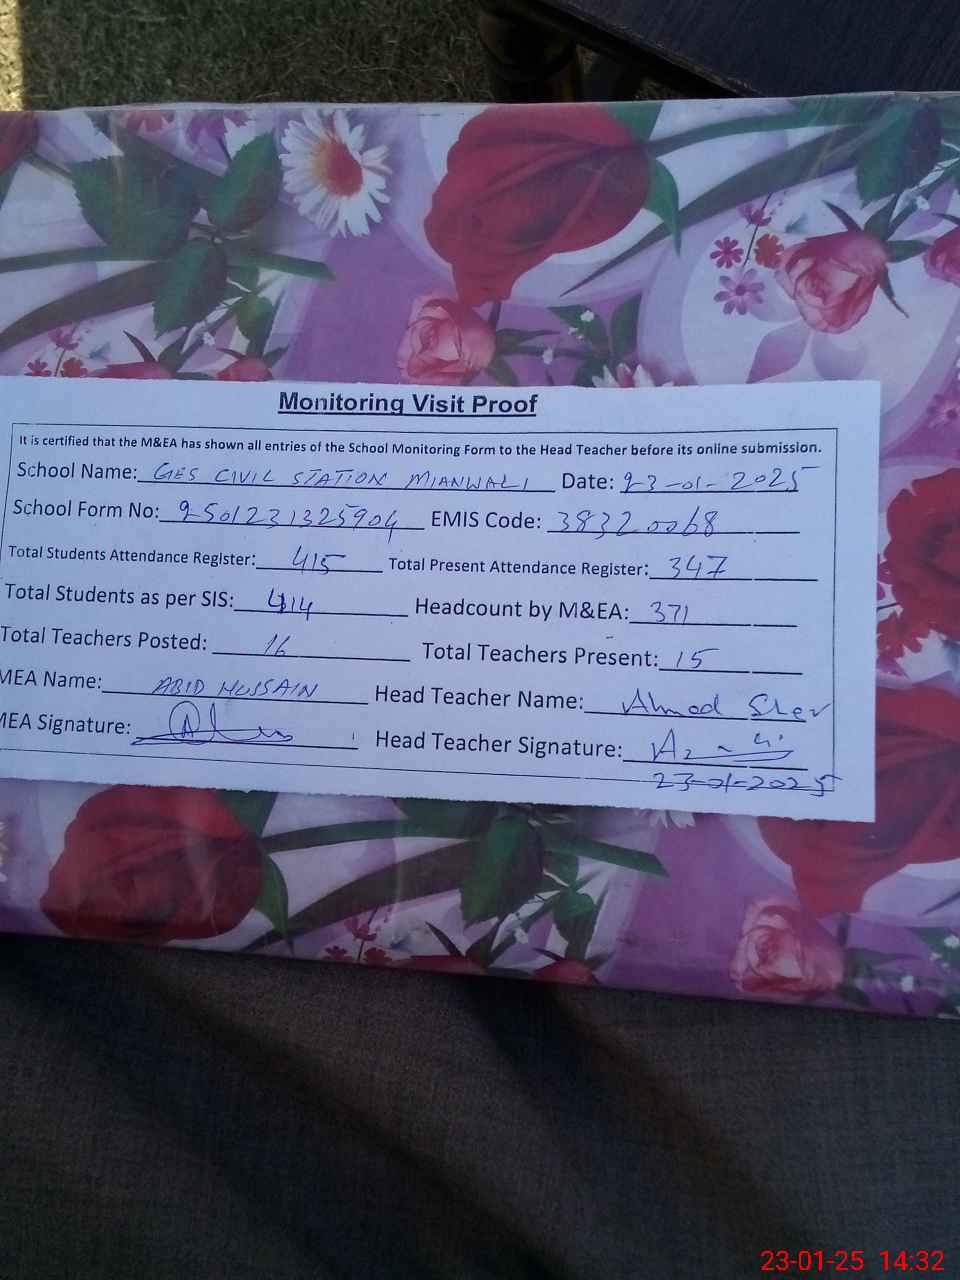 Monitoring Visit Proof
It is certified that the M&EA has shown all entries of the School Monitoring Form to the Head Teacher before its online submission.
School Name: GES CIVIL STATION MIANWALI Date: 23-01-2025
School Form No: 2501231325904 EMIS Code: 38320068
Total Students Attendance Register: 415 Total Present Attendance Register: 347
Total Students as per SIS: 414 Headcount by M&EA: 371
Total Teachers Posted: 16 Total Teachers Present: 15
MEA Name: ABID HUSSAIN Head Teacher Name: Ahmad Sher
MEA Signature: Head Teacher Signature:
23-01-2025
23-01-25 14:32